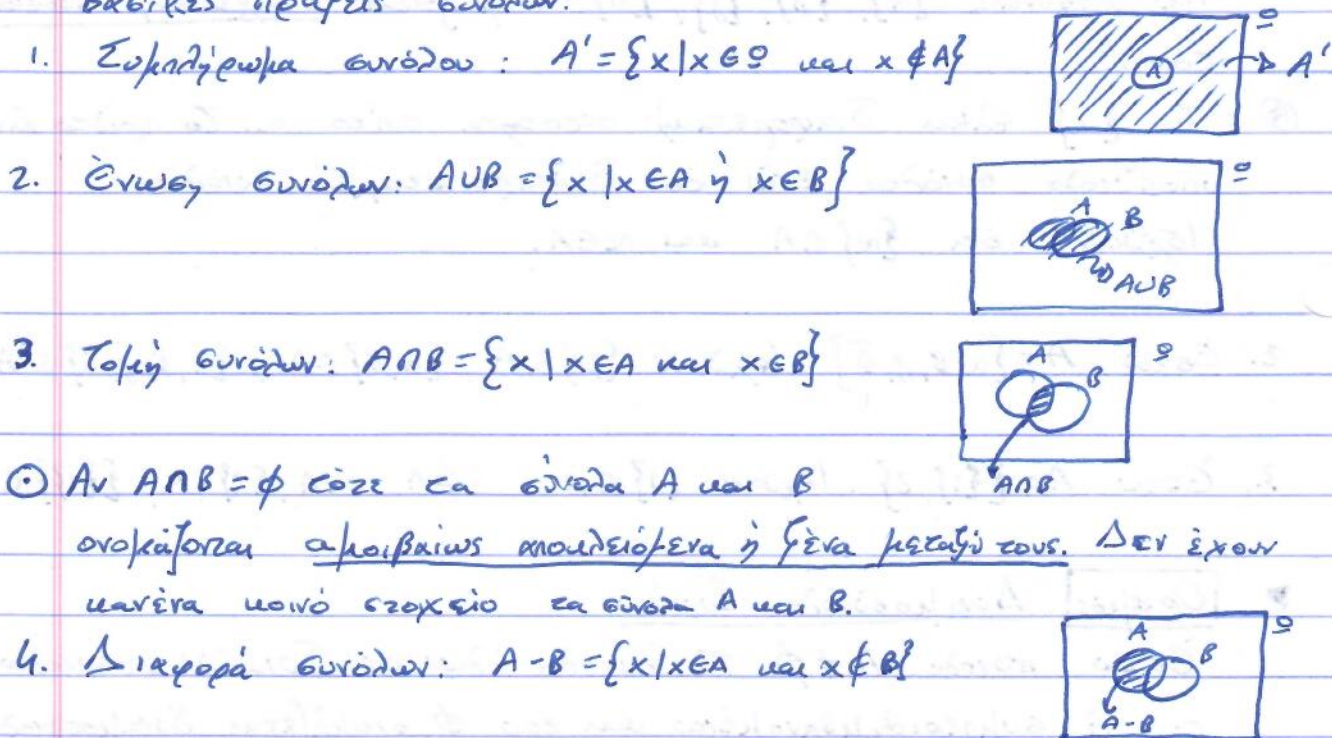 Βασικές πράξεις συνόλων:
1. Συμπλήρωμα συνόλου : A' = {x|x∈Ω και x∉A}
Ω
A
A'
2. Ένωση συνόλων: A∪B = {x |x∈A ή x∈B}
Ω
A B
A∪B
3. Τομή συνόλων: A∩B = {x | x∈A και x∈B}
Ω
A B
A∩B
⊙ Αν A∩B = ϕ τότε τα σύνολα A και B
ονομάζονται αμοιβαίως αποκλειόμενα ή ξένα μεταξύ τους. Δεν έχουν
κανένα κοινό στοιχείο τα σύνολα A και B.
4. Διαφορά συνόλων: A-B = {x|x∈A και x∉B}
Ω
A B
A-B